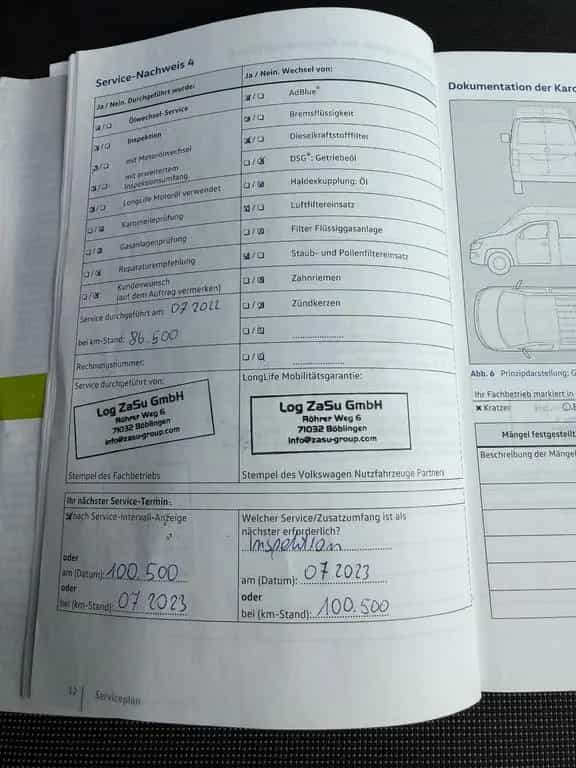 Service-Nachweis 4
Ja / Nein. Durchgeführt wurde:
Ölwechsel-Service
Inspektion
mit Motorölwechsel
mit erweitertem
Inspektionsumfang
LongLife Motoröl verwendet
Karosserieprüfung
Gasanlagenprüfung
Reparaturempfehlung
Kundenwunsch
(auf dem Auftrag vermerken)
Service durchgeführt am: 07 2022
bei km-Stand: 86.500
Rechnungsnummer:
Service durchgeführt von:
Log ZaSu GmbH
Röhrer Weg 6
71032 Böblingen
info@zasu-group.com
Stempel des Fachbetriebs
Ja / Nein. Wechsel von:
AdBlue®
Bremsflüssigkeit
Dieselkraftstofffilter
DSG®: Getriebeöl
Haldexkupplung: Öl
Luftfiltereinsatz
Filter Flüssiggasanlage
Staub- und Pollenfiltereinsatz
Zahnriemen
Zündkerzen
LongLife Mobilitätsgarantie:
Log ZaSu GmbH
Röhrer Weg 6
71032 Böblingen
info@zasu-group.com
Stempel des Volkswagen Nutzfahrzeuge Partners
Ihr nächster Service-Termin:
nach Service-Intervall-Anzeige
oder
am (Datum): 100.500
oder
bei (km-Stand): 07 2023
Welcher Service/Zusatzumfang ist als
nächster erforderlich?
Inspektion
am (Datum): 07 2023
oder
bei (km-Stand): 100.500
12 Serviceplan
Dokumentation der Karo
Abb. 6 Prinzipdarstellung: G
Ihr Fachbetrieb markiert in
× Kratzer
Mängel festgestellt
Beschreibung der Mängel